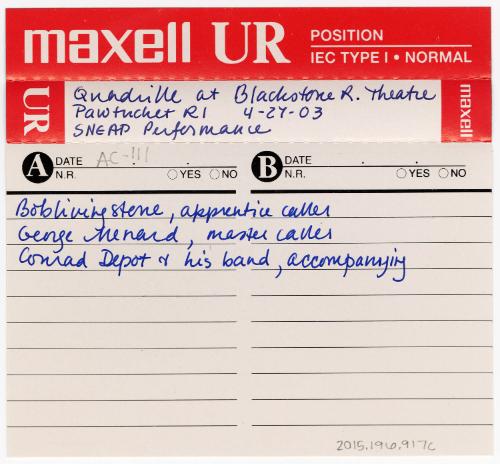 maxell UR POSITION
IEC TYPE I • NORMAL
UR
Quadrille at Blackstone R. Theatre
Pawtucket RI 4-27-03
SNEAP Performance
maxell
A DATE AC-111
N.R. YES NO
B DATE
N.R. YES NO
Bob Livingstone, apprentice caller
George Menard, master caller
Conrad Depot & his band, accompanying
2015.196.917c